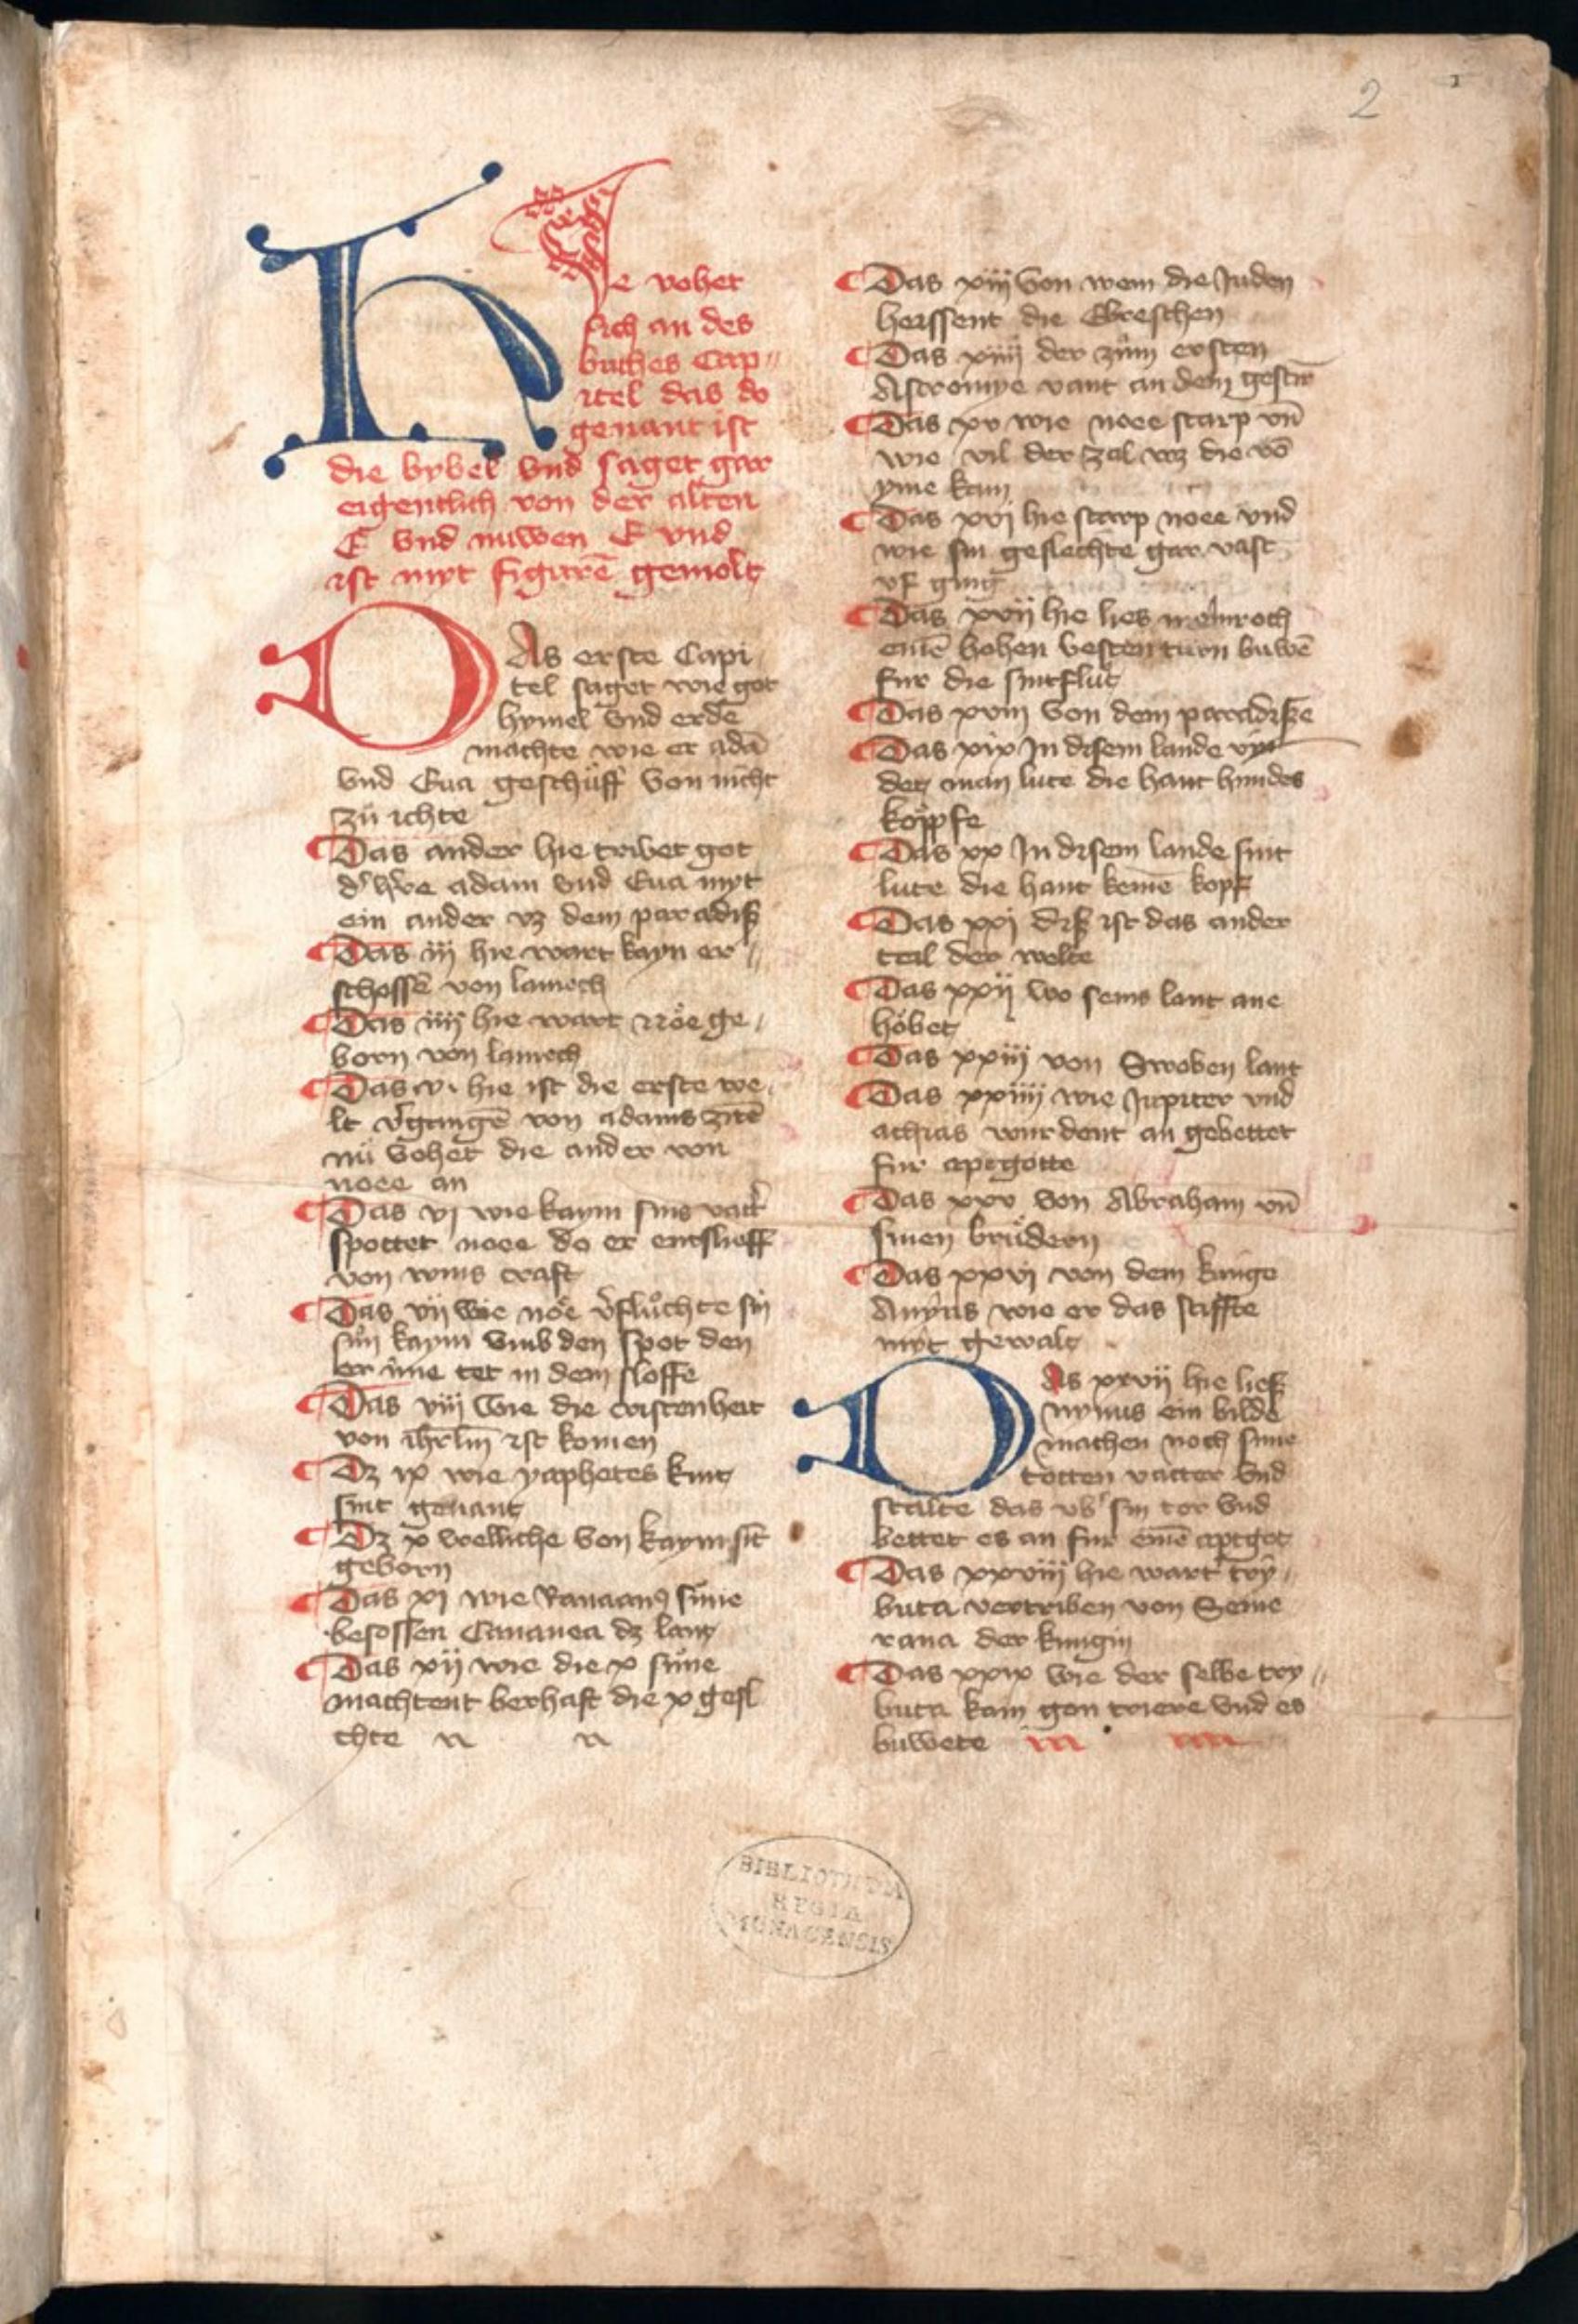 2
1
HIe vohet
sich an des
buches Cap〃
itel das do
genant ist
die bybel vnd saget gar
eigentlich von der alten
E vnd nuwen E vnd
ist myt figurē gemolt
DAs erste Capi
tel saget wie got
hymel vnd erde
machte wie er adā
vnd Eua geschuͦff von nicht
zuͦ ichte
Das ander hie tribet got
adam vnd Eua myt
ein ander vz dem paradiß
Das iij hie wart kayn er〃
schossē von lamech
Das iiij hie wart Nöe ge /
born von lamech
Das v· hie ist die erste we /
lt v̄gangē von adams zitē
nuͦ vohet die ander von
noee an
Das vj wie kaym sins vatt͛
spottet noee do er entslieff
von wins craft
Das vij wie nöe v͛fluͦchte sin
suͦn kaym vmb den spot den
er ime tet in dem sloffe
Das viij Wie die cristenheit
von ih̄rl̄m ist komen
Dz ix wie yaphetes kint
sint genant
Dz x welliche von kaym sīt
geborn
Das xj wie Kanaans süne
besossen Cananea dz lant
Das xij wie die x süne
machtent berhaft die x gesl
chte
Das xiij von wem die Juden
heissent die Ebreschen
Das xiiij der zuͦm ersten
Astromye vant an dem gestir̄
Das xv wie noee starp vn̄
wie vil der zal waz die vō
yme kam
Das xvj hie starp noee vnd
wie sin geslechte gar vast
vf ging
Das xvij hie lies nemroch
einē hohen vesten turn buwē
fur die sintflut
Das xviij von dem paradiße
Das xix In disem lande vin
det man lute die hant hundes
köpfe
Das xx In disem lande sint
lute die hant keinē kopf
Das xxj diß ist das ander
teil der welte
Das xxij wo sems lant ane
höbet
Das xxiij von Swoben lant
Das xxiiij wie Jupiter vnd
achias wurdent an gebettet
fur aptgotte
Das xxv von Abraham vn̄
sinen bruͤdern
Das xxvj von dem kunige
Anynus wie er das stiffte
myt gewalt
DAs xxvij hie ließ
nynus ein bilde
machen noch sime
totten vatter vnd
stalte das vb͛ sin tor vnd
bettet es an fur einē aptgot
Das xxviij hie wart try /
buta vertriben von Seme
rana der kungin
Das xxix wie der selbe try〃
buta kam gon triere vnd es
buwete
BIBLIOTHECA
REGIA
MONACENSIS